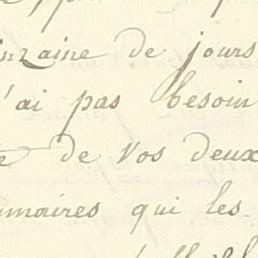 inzaine de jours
'ai pas besoin
de vos deux
maires qui les